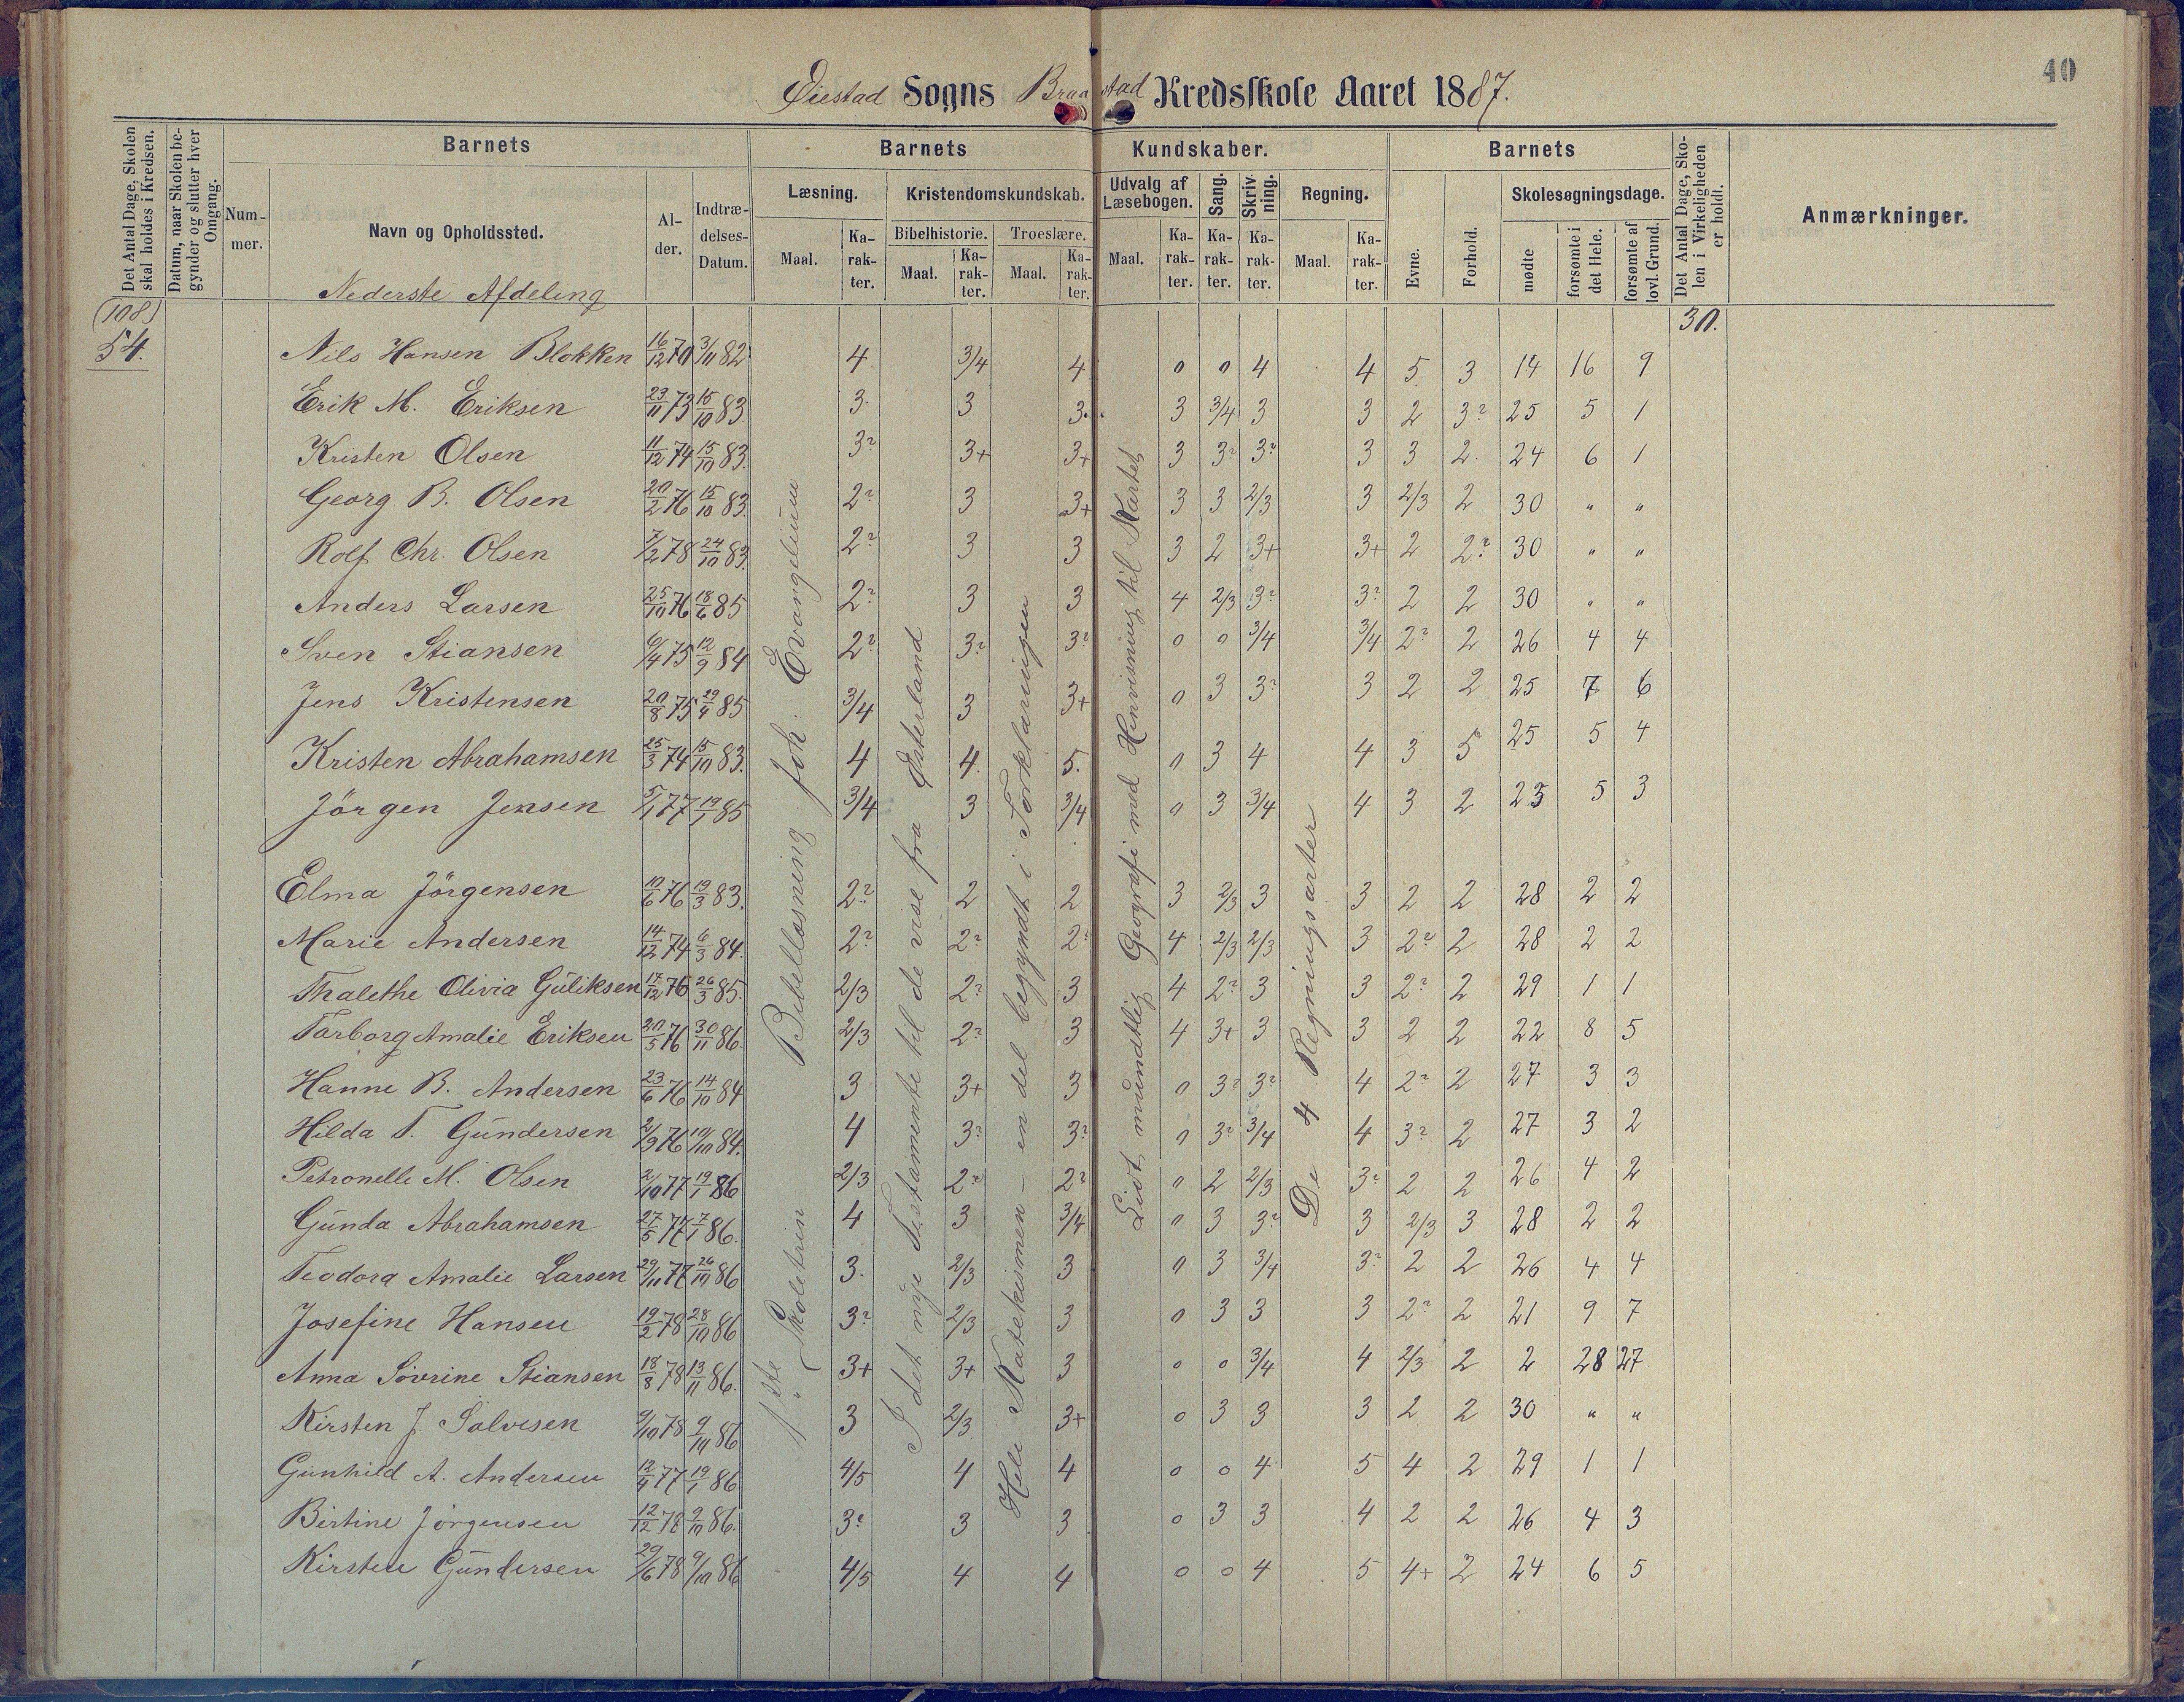 40
Øiestad Sogns Braastad Kredsskole Aaret 1887.
Det Antal Dage, Skolen skal holdes i Kredsen.
Datum, naar Skolen be-gynder og slutter hver Omgang.
Barnets
Num-mer.
Navn og Opholdssted.
Al-der.
Indtræ-delses-Datum.
Barnets Kundskaber.
Læsning.
Maal.
Ka-rak-ter.
Kristendomskundskab.
Bibelhistorie.
Maal.
Ka-rak-ter.
Troeslære.
Maal.
Ka-rak-ter.
Udvalg af Læsebogen.
Maal.
Ka-rak-ter.
Sang.
Ka-rak-ter.
Skriv-ning.
Ka-rak-ter.
Regning.
Maal.
Ka-rak-ter.
Barnets
Evne.
Forhold.
Skolesøgningsdage.
mødte
forsømte i det Hele.
forsømte af lovl. Grund.
Det Antal Dage, Sko-len i Virkeligheden er holdt.
Anmærkninger.
Nederste Afdeling
(108)
54.
30.
1ste Skoletrin Bibellæsning Joh. Evangelium
I det nye Testamente til de vise fra Østerland
Hele Katekismen - en del begyndt i Forklaringen
Lidt mundtlig Geografi med Henvisning til Kartet
De 4 Regningsarter
Nils Hansen Blokken 16/12 70 3/11 82 4 3/4 4 0 0 4 4 5 3 14 16 9
Erik M. Eriksen 23/11 73 15/10 83. 3. 3 3. 3 3/4 3 3 2 3? 25 5 1
Kristen Olsen 11/12 74 15/10 83. 3? 3+ 3+ 3 3? 3? 3 3 2. 24 6 1
Georg B. Olsen 20/2 76 15/10 83. 2? 3 3+ 3 3 2/3 3 2/3 2 30 " "
Rolf Chr. Olsen 7/2 78 24/10 83. 2? 3 3 3 2 3+ 3+ 2 2? 30 " "
Anders Larsen 25/10 76 18/6 85 2? 3 3 4 2/3 3? 3? 2 2 30 " "
Sven Stiansen 6/4 75 12/9 84 2? 3? 3? 0 0 3/4 3/4 2? 2 26 4 4
Jens Kristensen 20/8 75 29/4 85 3/4 3 3+ 0 3 3? 3 2 2 25 7 6
Kristen Abrahamsen 25/3 74 15/10 83. 4 4. 5. 0 3 4 4 3 5 25 5 4
Jörgen Jensen 5/1 77 19/1 85 3/4 3 3/4 0 3 3/4 4 3 2 25 5 3
Elma Jörgensen 10/6 76 19/3 83. 2? 2 2 3 2/3 3 3 2 2 28 2 2
Marie Andersen 14/12 74 6/3 84. 2? 2? 2? 4 2/3 2/3 3 2? 2 28 2 2
Thalethe Olivia Guliksen 17/12 76 26/3 85. 2/3 2? 3 4 2? 3 3 2? 2 29 1 1
Tarborg Amalie Eriksen 20/5 76 30/11 86. 2/3 2? 3 4 3+ 3 3 2 2 22 8 5
Hanne B. Andersen 23/6 76 14/10 84 3 3+ 3 0 3? 3? 4 2? 2 27 3 3
Hilda T. Gundersen 2/9 76 10/10 84. 4 3? 3? 0 3? 3/4 4 3? 2 27 3 2
Petronelle M. Olsen 2/10 77 19/1 86 2/3 2? 2? 0 2 2/3 3? 2 2 26 4 2
Gunda Abrahamsen 27/5 77 7/1 86. 4 3 3/4 0 3 3? 3 2/3 3 28 2 2
Teodora Amalie Larsen 29/11 77 26/10 86 3. 2/3 3 0 3 3/4 3? 2 2 26 4 4
Josefine Hansen 19/2 78 28/10 86 3? 2/3 3 0 3 3 3 2? 2 21 9 7
Anna Sövrine Stiansen 18/8 78 13/11 86. 3+ 3+ 3 0 0 3/4 4 2/3 2 2 28 27
Kirsten J. Salvesen 9/10 78 9/10 86 3 2/3 3+ 0 3 3 3 2 2 30 " "
Gunhild A. Andersen 12/4 77 19/1 86 4/5 4 4 0 0 4 5 4 2 29 1 1
Birtine Jörgensen 12/12 78 9/10 86. 3? 3 3 0 3 3 4 2 2 26 4 3
Kirsten Gundersen 29/6 78 9/10 86 4/5 4 4 0 0 4 5 4+ 2 24 6 5